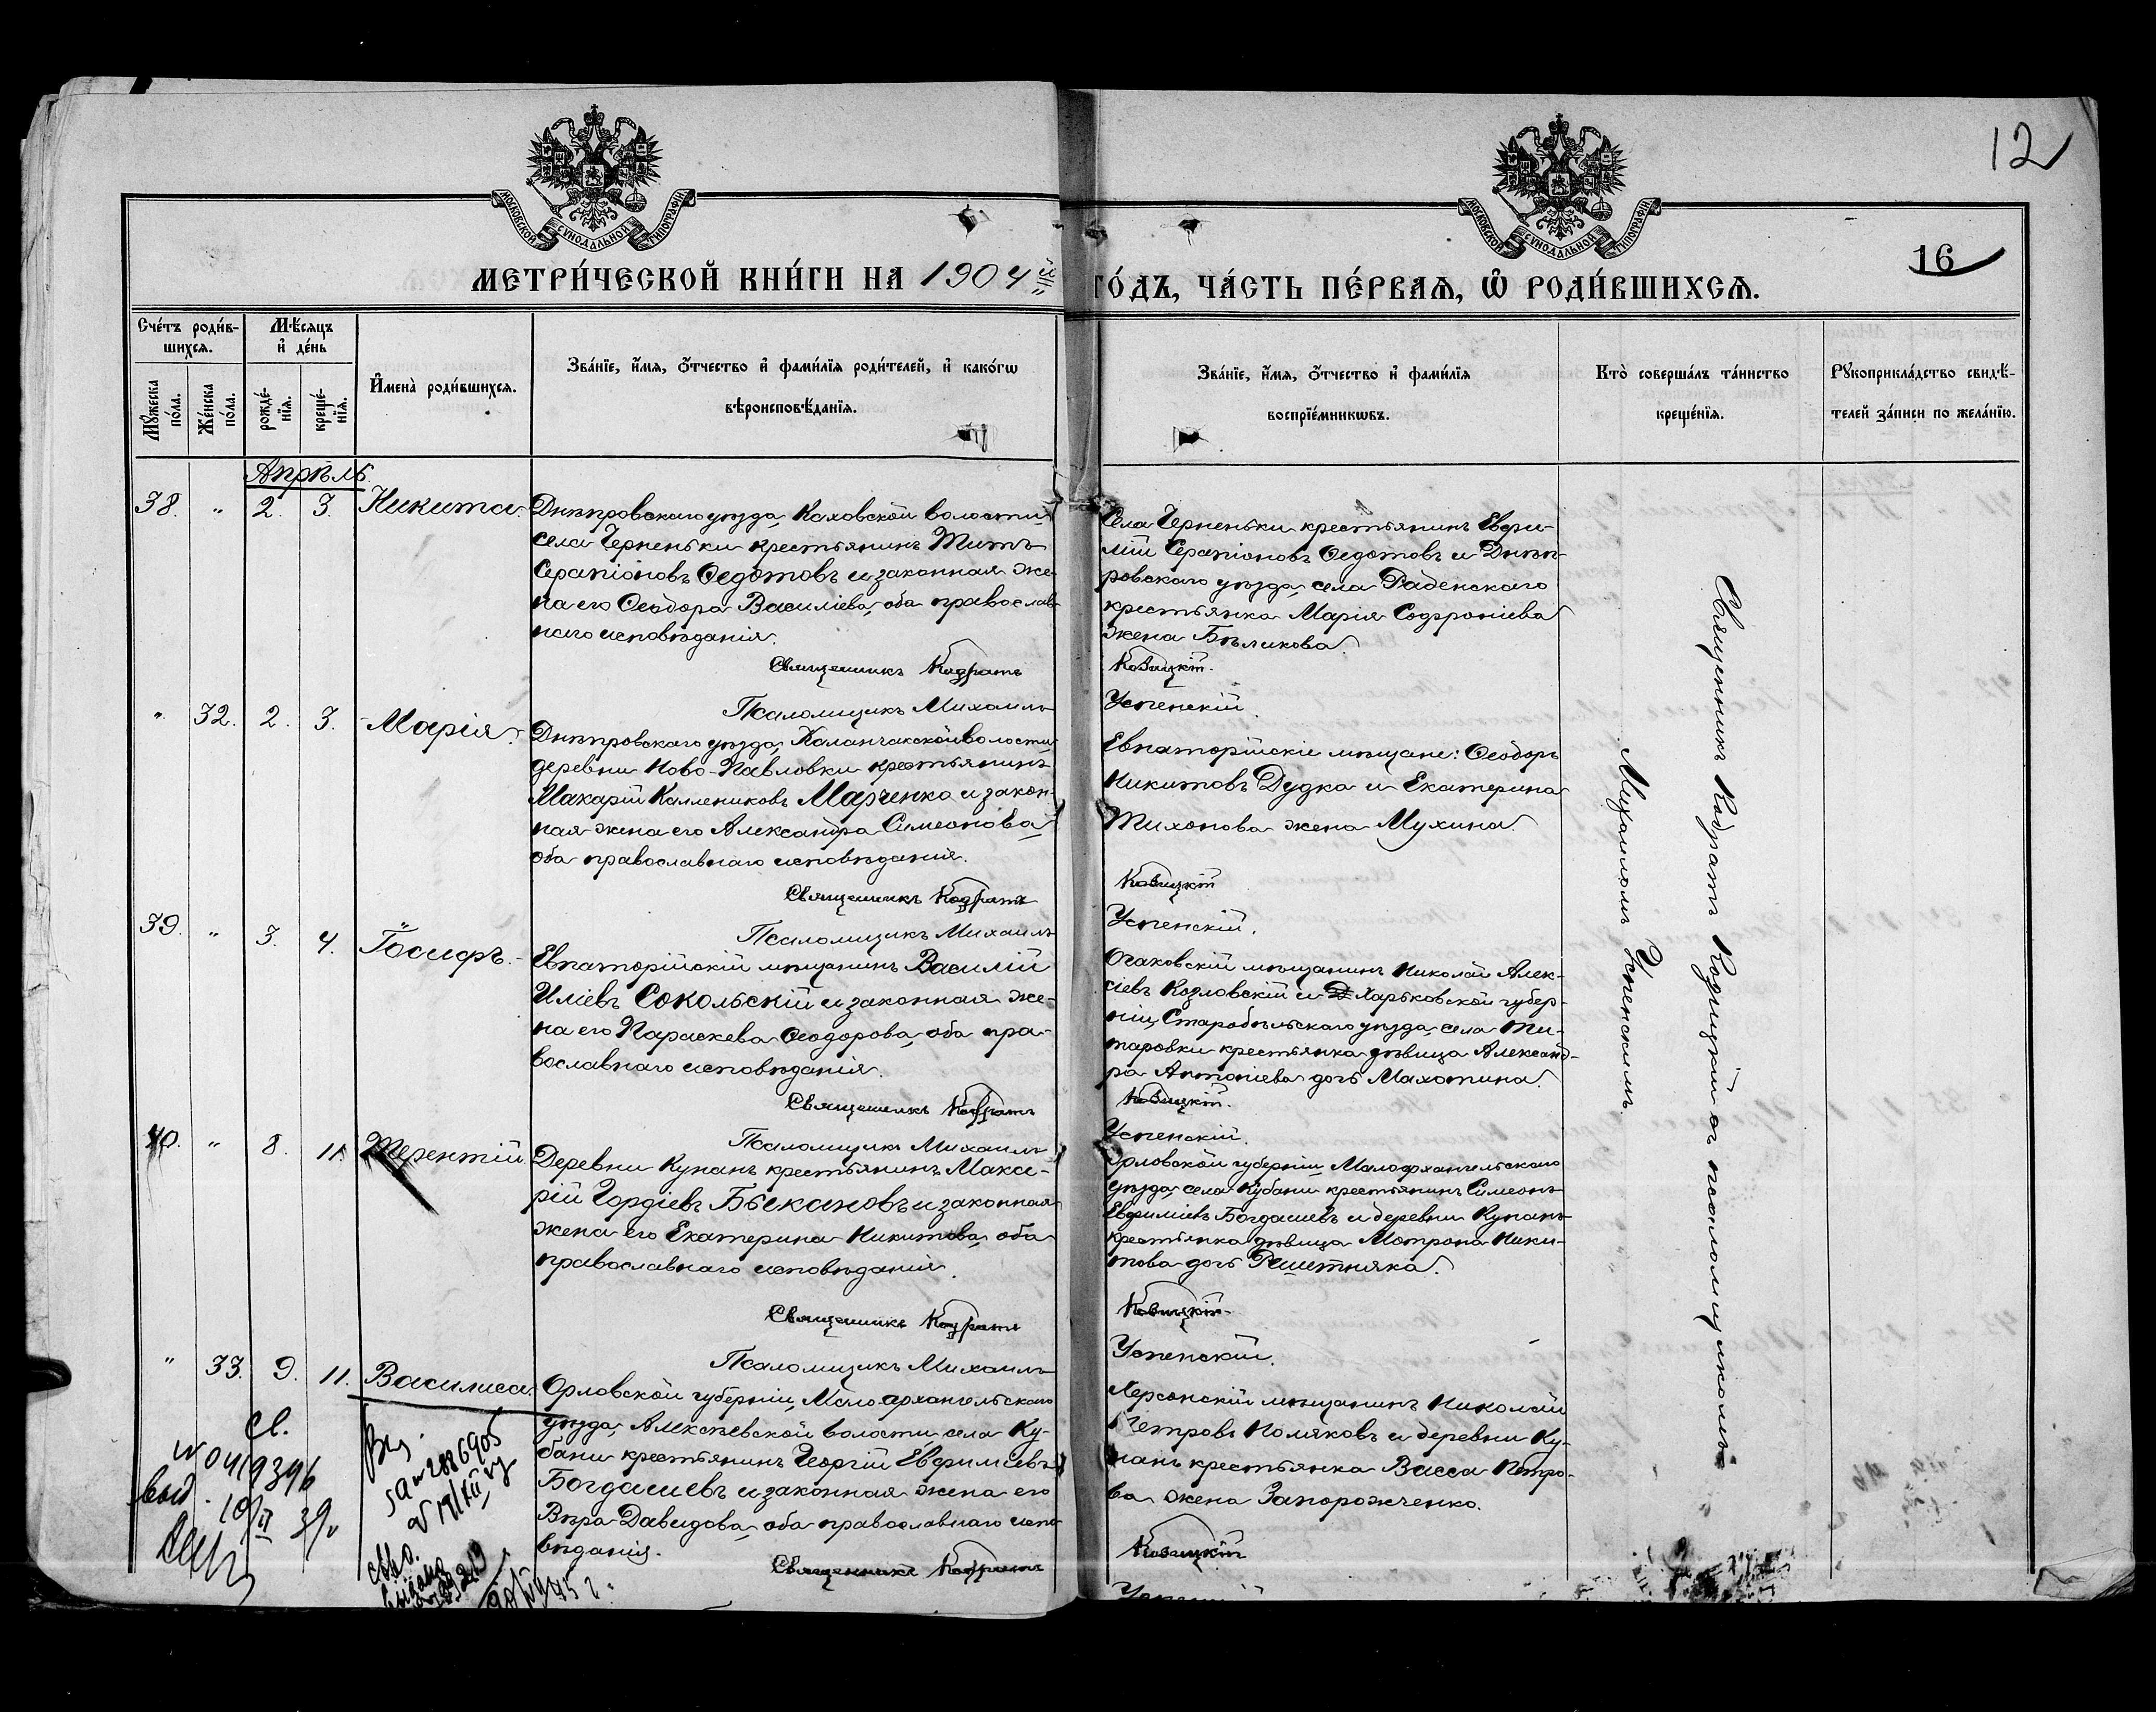 12
МОСКОВСКОЙ СѴНОДАЛЬНОЙ ТИПОГРАФІИ
МОСКОВСКОЙ СѴНОДАЛЬНОЙ ТИПОГРАФІИ
16
МЕТРИ́ЧЕСКОЙ КНИ́ГИ НА 1904
ГО́ДЪ, ЧА́СТЬ ПЕ́РВАѦ, Ѡ҆ РОДИ́ВШИХСѦ.
Сче́тъ роди́в-
шихсѧ.
Мꙋ́жеска по́ла.
Же́нска по́ла.
Мѣ́сѧцъ
и҆ де́нь
рожде́-
нїѧ.
креще́-
нїѧ.
И҆мена̀ роди́вшихсѧ.
Зва́нїе, и҆́мѧ, ѻ҆́тчество и҆ фами́лїѧ роди́телей, и҆ како́гѡ
вѣроисповѣ́данїѧ.
Зва́нїе, и҆́мѧ, ѻ҆́тчество и҆ фами́лїѧ
воспрїе́мникѡвъ.
Кто̀ соверша́лъ та́инство
креще́нїѧ.
Рꙋкоприкла́дство свидѣ́-
телей за́писи по жела́нїю.
Апрѣль.
38. " 2. 3. Никита.
Днѣпровскаго уѣзда, Каховской волости,
села Черненьки крестьянинъ Титъ
Серапіоновъ Ѳедотовъ и законная же-
на его Ѳеодора Василіева, оба православ-
наго исповѣданія.
Священникъ Кодратъ
Псаломщикъ Михаилъ
Села Черненьки крестьянинъ Евѳи-
мій Серапіоновъ Ѳедотовъ и Днѣп-
ровскаго уѣзда, села Раденскаго
крестьянка Марія Софроніева
жена Бѣликова.
Козицкій.
Успенскій.
" 32. 2. 3. Марія.
Днѣпровскаго уѣзда, Каланчакской волости,
деревни Ново-Павловки крестьянинъ
Макарій Каллениковъ Марченко и закон-
ная жена его Александра Симеонова,
оба православнаго исповѣданія.
Священникъ Кодратъ
Псаломщикъ Михаилъ
Евпаторійскіе мѣщане: Ѳеодоръ
Никитовъ Дудка и Екатерина
Тихонова жена Мухина.
Козицкій
Успенскій.
39. " 3. 4. Іосифъ.
Евпаторійскій мѣщанинъ Василій
Иліевъ Сокольскій и законная же-
на его Параскева Ѳеодорова, оба пра-
вославнаго исповѣданія.
Священникъ Кодратъ
Псаломщикъ Михаилъ
Очаковскій мѣщанинъ Николай Алек-
сіевъ Козловскій и Харьковской губер-
ніи, Старобѣльскаго уѣзда, села Ти-
таровки крестьянка дѣвица Александ-
ра Антоніева дочь Махотина.
Козицкій.
Успенскій.
40. " 8. 11. Терентій
Деревни Кучанъ крестьянинъ
Гордіевъ и законная
жена его Екатерина Никитова, оба
православнаго исповѣданія.
Священникъ Кодратъ
Псаломщикъ Михаилъ
Орловской губерніи, Малоархангельскаго
уѣзда, села Кубани крестьянинъ Симеонъ
Евѳиміевъ Богдашевъ и деревни
крестьянка дѣвица Мотрона Ники-
това дочь Решетняка.
Козицкій.
Успенскій.
" 33. 9. 11. Василиса.
Орловской губерніи, Малоархангельскаго
уѣзда, Алексѣевской волости, села Ку-
бани крестьянинъ Георгій Евѳиміевъ
Богдашевъ и законная жена его
Вѣра Давидова, оба православнаго испо-
вѣданія.
Священникъ Кодратъ
Херсонскій мѣщанинъ Николай
Петровъ Поляковъ и деревни
крестьянка Васса Петро-
ва жена Запорожченко.
Козицкій
Священникъ Кодратъ Козицкій съ псаломщикомъ
Михаиломъ Успенскимъ.